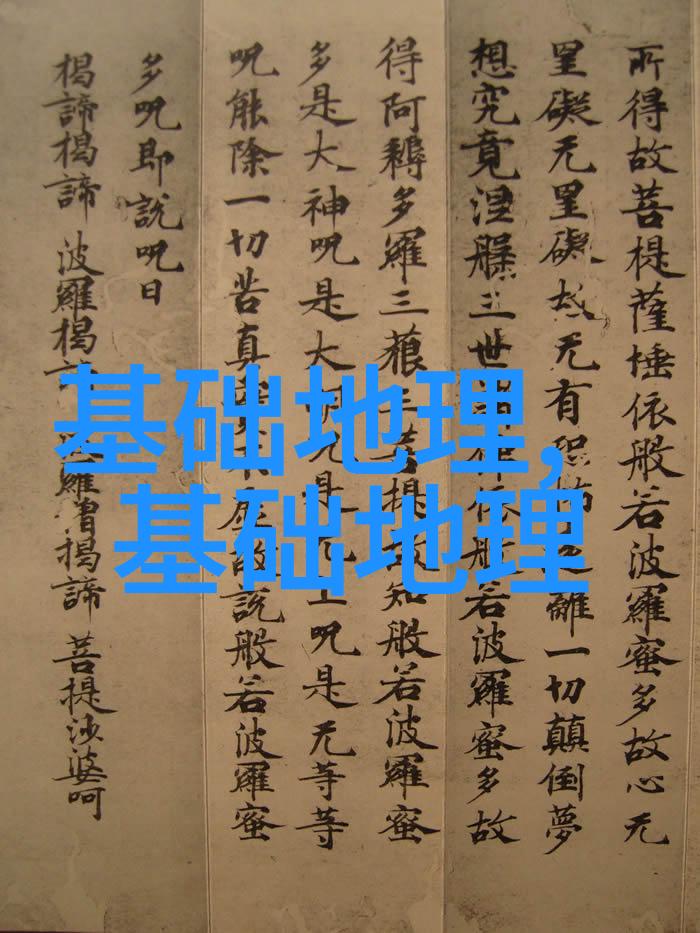 所得故菩提薩埵依般若波羅蜜多故心无
罣礙无罣礙故无有恐離一切顛倒夢
想究竟涅槃三世依般若波羅蜜多故
得阿耨多羅三藐三菩提故知般若波羅蜜
多是大神呪是大明呪是无上呪是无等等
呪能除一切苦真實不虛故說般若波羅蜜
多呪即說呪曰
揭諦揭諦 波羅揭諦 波羅僧揭諦 菩提沙婆呵
基础地理,
基础地理